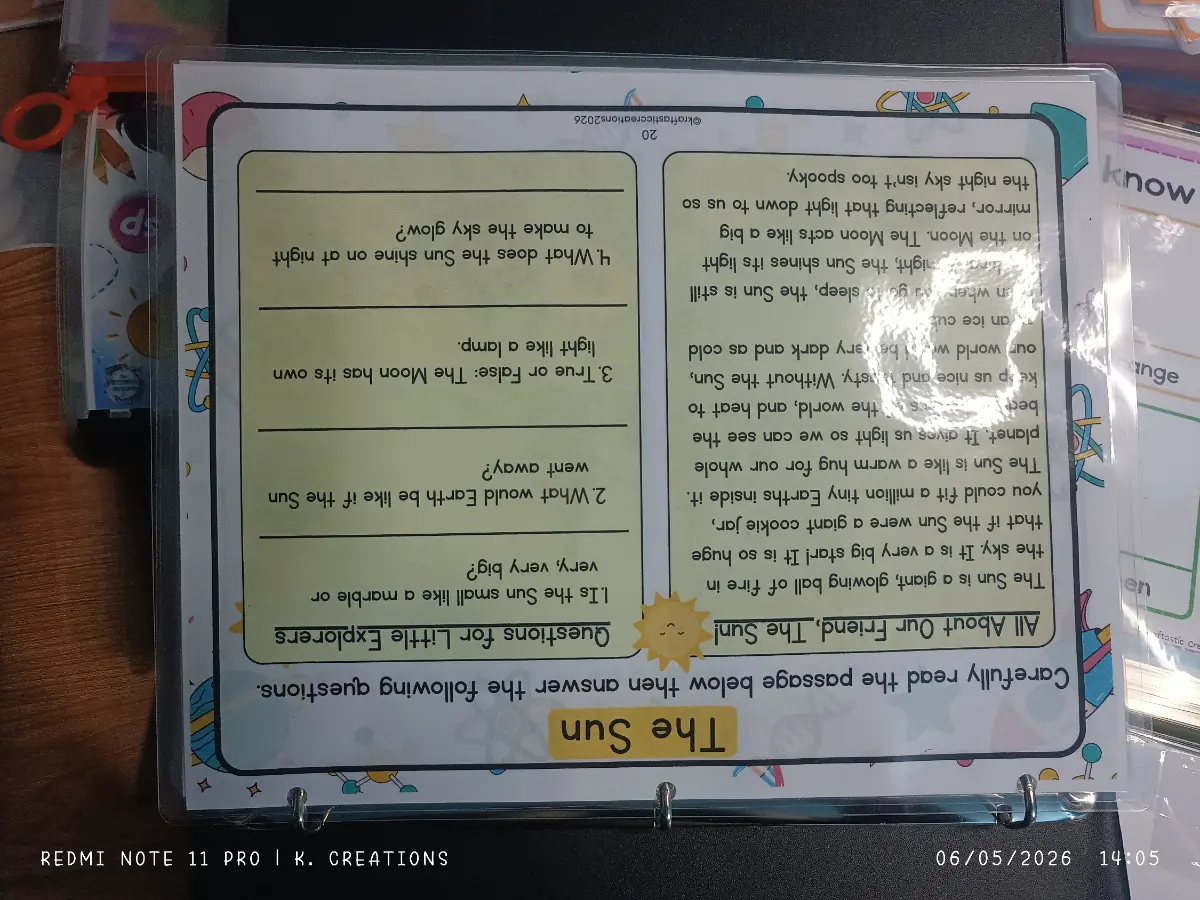 The Sun
Carefully read the passage below then answer the following questions.
All About Our Friend, The Sun!
The Sun is a giant, glowing ball of fire in
the sky. It is a very big star! It is so huge
that if the Sun were a giant cookie jar,
you could fit a million tiny Earths inside it.
The Sun is like a warm hug for our whole
planet. It gives us light so we can see the
the world, and heat to
keep us nice and Without the Sun,
our world be very dark and as cold
an ice
when go to sleep, the Sun is still
night, the Sun shines its light
on the Moon. The Moon acts like a big
mirror, reflecting that light down to us so
the night sky isn't too spooky.
Questions for Little Explorers
1.Is the Sun small like a marble or
very, very big?
2.What would Earth be like if the Sun
went away?
3.True or False: The Moon has its own
light like a lamp.
4.What does the Sun shine on at night
to make the sky glow?
20
©kraftasticcreations2026
know
ange
en
ds
REDMI NOTE 11 PRO | K. CREATIONS
06/05/2026 14:05